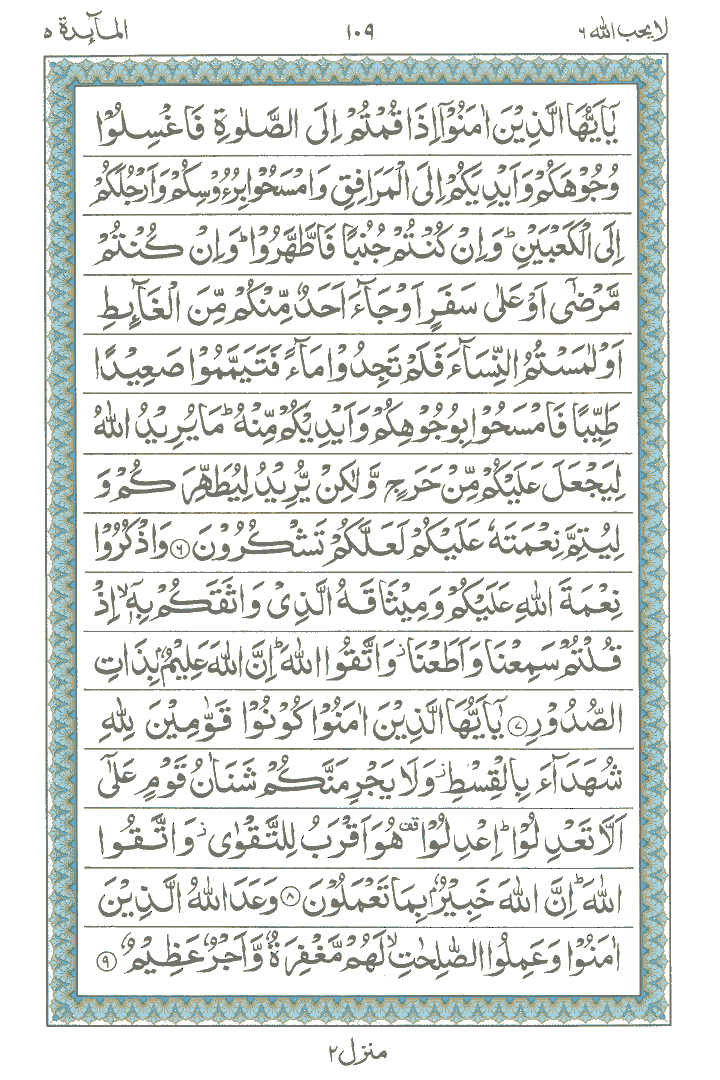 لا يحب الله ٦ ١٠٩ المآئدة ٥
يٰٓاَيُّهَا الَّذِيْنَ اٰمَنُوْٓا اِذَا قُمْتُمْ اِلَى الصَّلٰوةِ فَاغْسِلُوْا
وُجُوْهَكُمْ وَاَيْدِيَكُمْ اِلَى الْمَرَافِقِ وَامْسَحُوْا بِرُءُوْسِكُمْ وَاَرْجُلَكُمْ
اِلَى الْكَعْبَيْنِ ؕ وَاِنْ كُنْتُمْ جُنُبًا فَاطَّهَّرُوْا ؕ وَاِنْ كُنْتُمْ
مَّرْضٰٓى اَوْ عَلٰى سَفَرٍ اَوْ جَآءَ اَحَدٌ مِّنْكُمْ مِّنَ الْغَآئِطِ
اَوْ لٰمَسْتُمُ النِّسَآءَ فَلَمْ تَجِدُوْا مَآءً فَتَيَمَّمُوْا صَعِيْدًا
طَيِّبًا فَامْسَحُوْا بِوُجُوْهِكُمْ وَاَيْدِيْكُمْ مِّنْهُ ؕ مَا يُرِيْدُ اللّٰهُ
لِيَجْعَلَ عَلَيْكُمْ مِّنْ حَرَجٍ وَّلٰكِنْ يُّرِيْدُ لِيُطَهِّرَكُمْ وَ
لِيُتِمَّ نِعْمَتَهٗ عَلَيْكُمْ لَعَلَّكُمْ تَشْكُرُوْنَ ۝٦ وَاذْكُرُوْا
نِعْمَةَ اللّٰهِ عَلَيْكُمْ وَمِيْثَاقَهُ الَّذِيْ وَاثَقَكُمْ بِهٖٓ ۙ اِذْ
قُلْتُمْ سَمِعْنَا وَاَطَعْنَا ؗ وَاتَّقُوا اللّٰهَ ؕ اِنَّ اللّٰهَ عَلِيْمٌۢ بِذَاتِ
الصُّدُوْرِ ۝٧ يٰٓاَيُّهَا الَّذِيْنَ اٰمَنُوْا كُوْنُوْا قَوّٰمِيْنَ لِلّٰهِ
شُهَدَآءَ بِالْقِسْطِ ؗ وَلَا يَجْرِمَنَّكُمْ شَنَاٰنُ قَوْمٍ عَلٰٓى
اَلَّا تَعْدِلُوْا ؕ اِعْدِلُوْا ۫ هُوَ اَقْرَبُ لِلتَّقْوٰى ؗ وَاتَّقُوا
اللّٰهَ ؕ اِنَّ اللّٰهَ خَبِيْرٌۢ بِمَا تَعْمَلُوْنَ ۝٨ وَعَدَ اللّٰهُ الَّذِيْنَ
اٰمَنُوْا وَعَمِلُوا الصّٰلِحٰتِ ۙ لَهُمْ مَّغْفِرَةٌ وَّاَجْرٌ عَظِيْمٌ ۝٩
منزل ٢